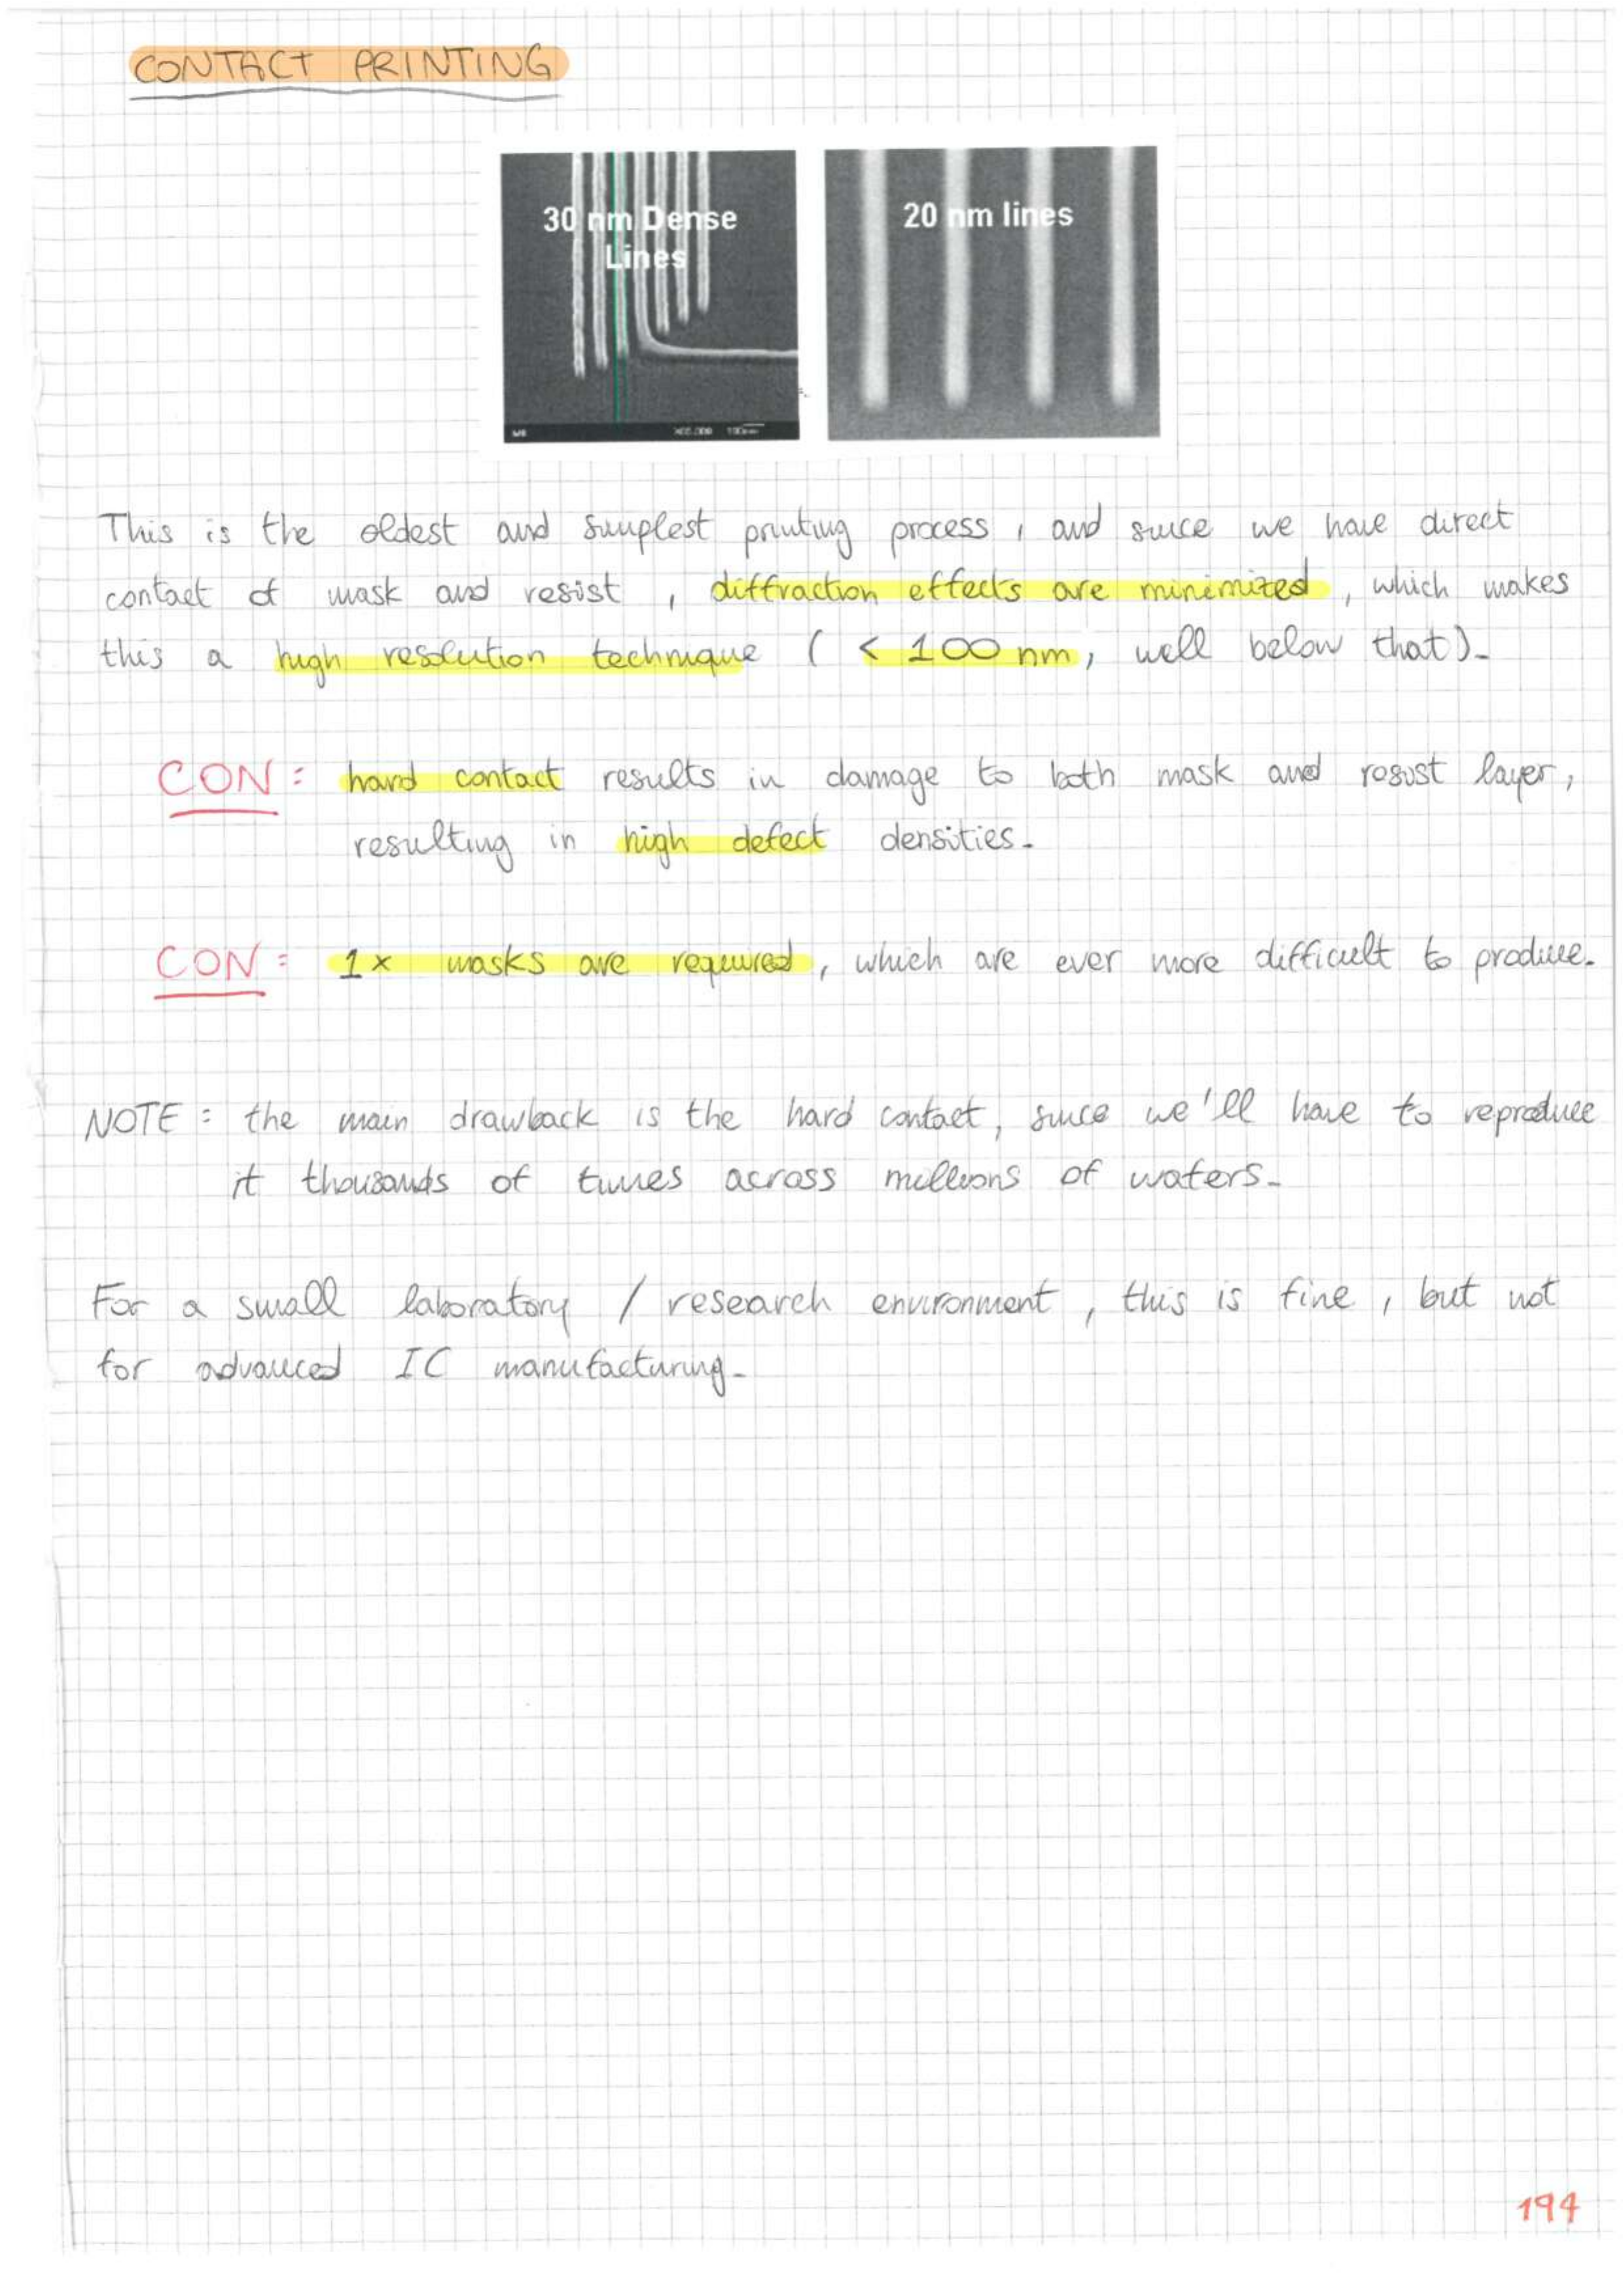 CONTACT PRINTING
30 nm Dense
Lines
20 nm lines
This is the oldest and simplest printing process, and since we have direct
contact of mask and resist, diffraction effects are minimized, which makes
this a high resolution technique (< 100 nm, well below that).
CON: hard contact results in damage to both mask and resist layer,
resulting in high defect densities.
CON: 1x masks are required, which are ever more difficult to produce.
NOTE: the main drawback is the hard contact, since we'll have to reproduce
it thousands of times across millions of wafers.
For a small laboratory / research environment, this is fine, but not
for advanced IC manufacturing.
194